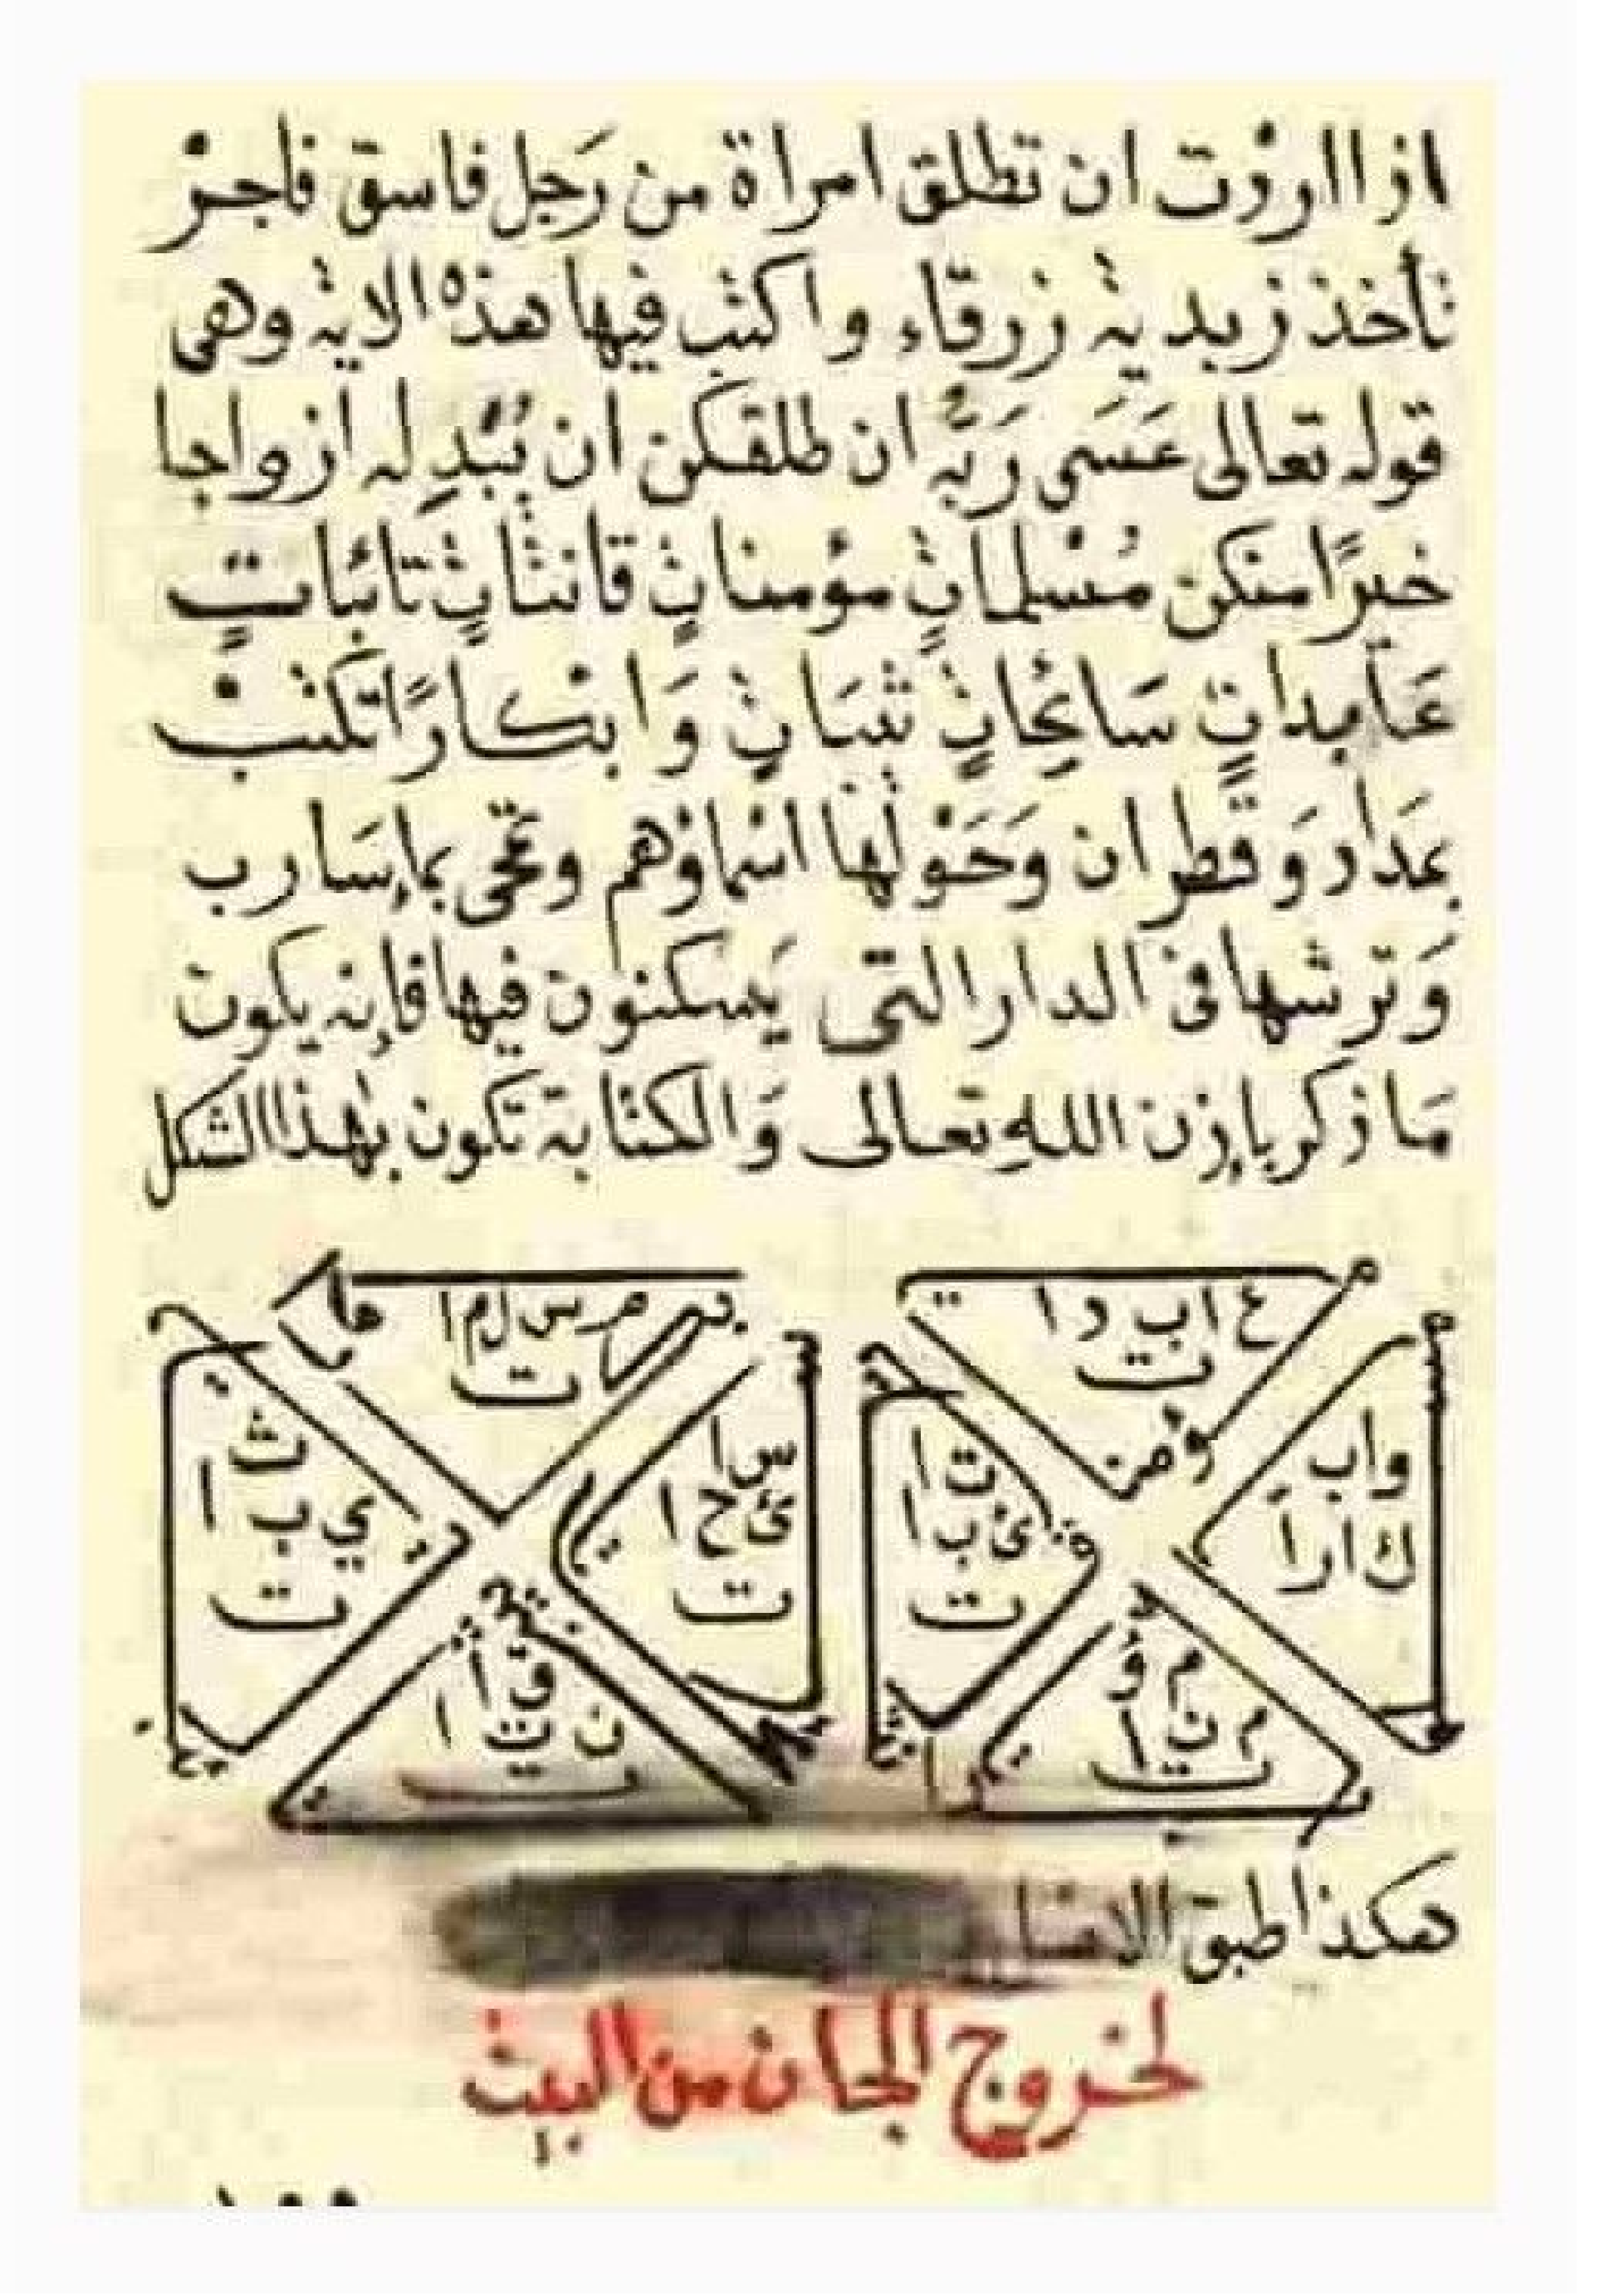 اذا اردت ان تطلق امراة من رَجل فاسق فاجر
تأخذ زبدية زرقاء واكتب فيها هذه الاية وهى
قوله تعالى عَسَى رَبّه ان طلقكن ان يُبْدِله ازواجا
خيرًا منكن مُسْلماتٍ مؤمناتٍ قانتاتٍ تائباتٍ
عَابداتٍ سَائحاتٍ ثيبَاتٍ وَابكارًا تكتب
بمَداد وَقطران وَحَوْلها اسماؤهم وتمحى بماء سَارب
وَترشها فى الدار التى يَسكنون فيها فإنه يكون
مَا ذكر بإذن اللهِ تعالى وَالكتابة تكون بهٰذا الشكل
ع ا ب د ا
ت
م س ل م ا
ت
و اب
ك ا راً
ت ا
ئ ب ا
ت
س ا
ئ ح ا
ت
ث
ي ب ا
ت
م ؤ
م ن ا
ت
ق أ
ن ت ا
ت
هكذا طبق
لخروج الجان من البيت